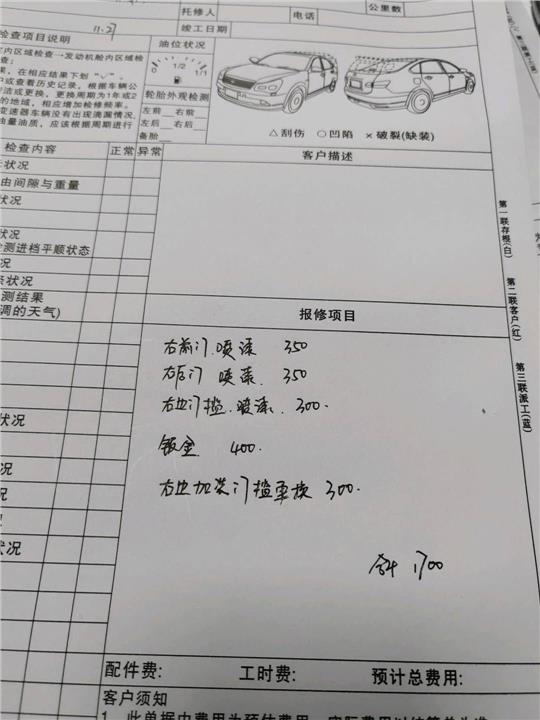 11.27
托修人
电话
公里数
竣工日期
检查项目说明
油位状况
内区域检查→发动机舱内区域检
查:
在相应结果下划“√”。
或查看历史记录，根据车辆公
洁或更换，更换周期为1年或2
的地域，相应增加检修频率。
变速器车辆没有出现滴漏情况，
油量油质，应该根据周期进行
1/2
1/1
轮胎外观检测
左前 右前
左后 右后
备胎
△刮伤 ○凹陷 ×破裂(缺装)
检查内容 正常 异常
客户描述
状况
由间隙与重量
状况
检测进档平顺状态
况
条状况
测结果
调的天气)
状况
况
况
状况
第一联存根(白)
第二联客户(红)
第三联派工(蓝)
报修项目
右前门喷漆 350
右后门 喷漆 350
右边门槛 喷漆 300.
钣金 400.
右边加装门槛更换 300.
合计 1700
配件费: 工时费: 预计总费用:
客户须知